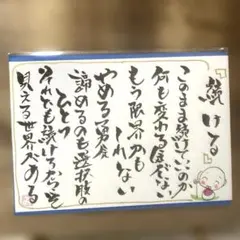 続ける
このまま続けていいのか
何も変わる気がしない
もう限界かも
しれない
やめる勇気
諦めるのも選択肢の
ひとつ
それでも続けるからこそ
見える世界がある